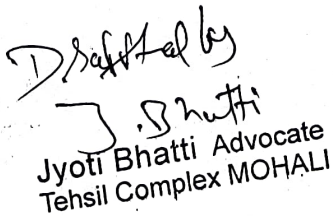 Drafted by
J. Bhatti
Jyoti Bhatti Advocate
Tehsil Complex MOHALI